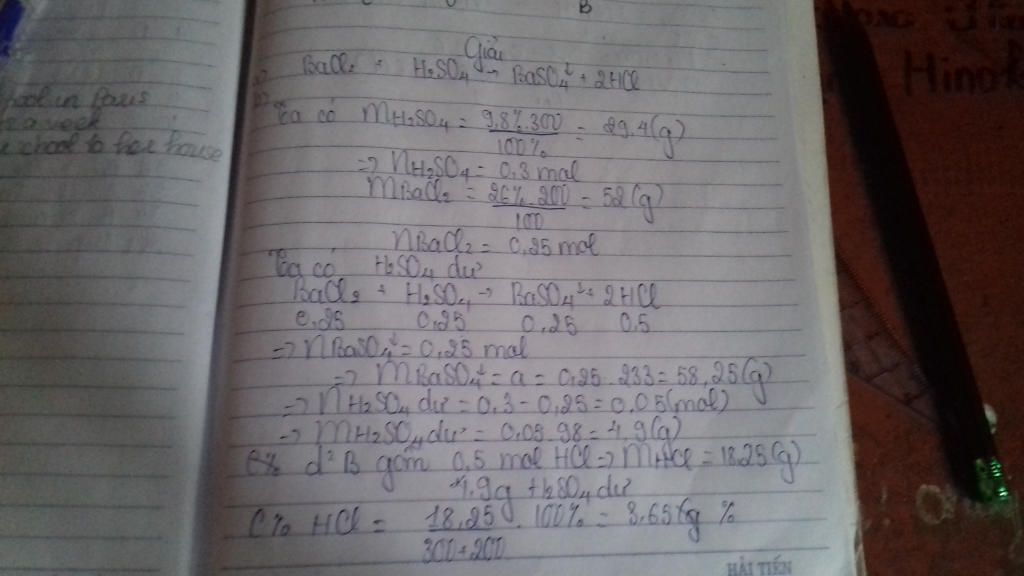 B
Giải
BaCl2 + H2SO4 → BaSO4↓ + 2HCl
Ta có mH2SO4 = 9,8%.300 / 100% = 29,4(g)
=> nH2SO4 = 0,3 mol
mBaCl2 = 26%.200 / 100 = 52(g)
nBaCl2 = 0,25 mol
Ta có H2SO4 dư
BaCl2 + H2SO4 → BaSO4↓ + 2HCl
0,25 0,25 0,25 0,5
=> nBaSO4↓ = 0,25 mol
=> mBaSO4↓ = a = 0,25.233 = 58,25(g)
=> nH2SO4 dư = 0,3 - 0,25 = 0,05(mol)
=> mH2SO4 dư = 0,05.98 = 4,9(g)
d² B gồm 0,5 mol HCl => mHCl = 18,25(g)
4,9g H2SO4 dư
C% HCl = 18,25 / 300+200 . 100% = 3,65 %
HẢI TIẾN
school in Paris
a week
school to her house